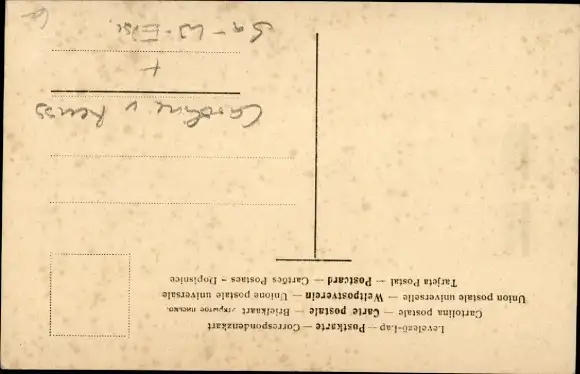 Levelező-Lap — Postkarte — Correspondenzkart
Cartolina postale — Carte postale — Briefkaart Открытое письмо.
Union postale universelle — Weltpostverein — Unione postale universale
Tarjeta Postal — Postcard — Cartões Postaes — Dopisnice
Caroline v Reuss
+
Sa-W-Eise.